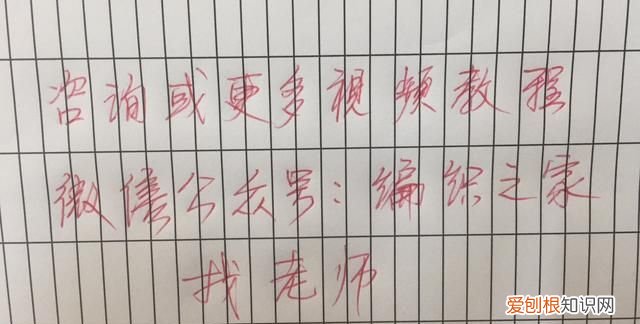 咨询或更多视频教程
微信公众号：编织之家
找老师
爱刨根知识网